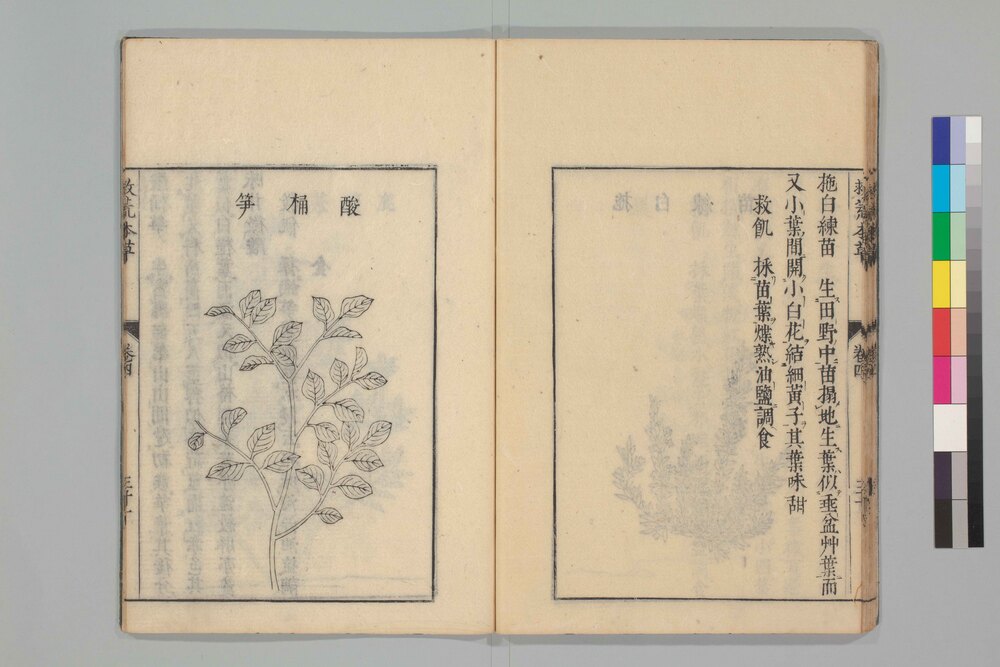 救荒本草
卷四
拖白練苗　生田野中苗搨地生葉似垂盆艸葉而
又小葉間開小白花結細黃子其葉味甜
救飢　採苗葉煠熟油鹽調食
酸桶笋
救荒本草
卷四